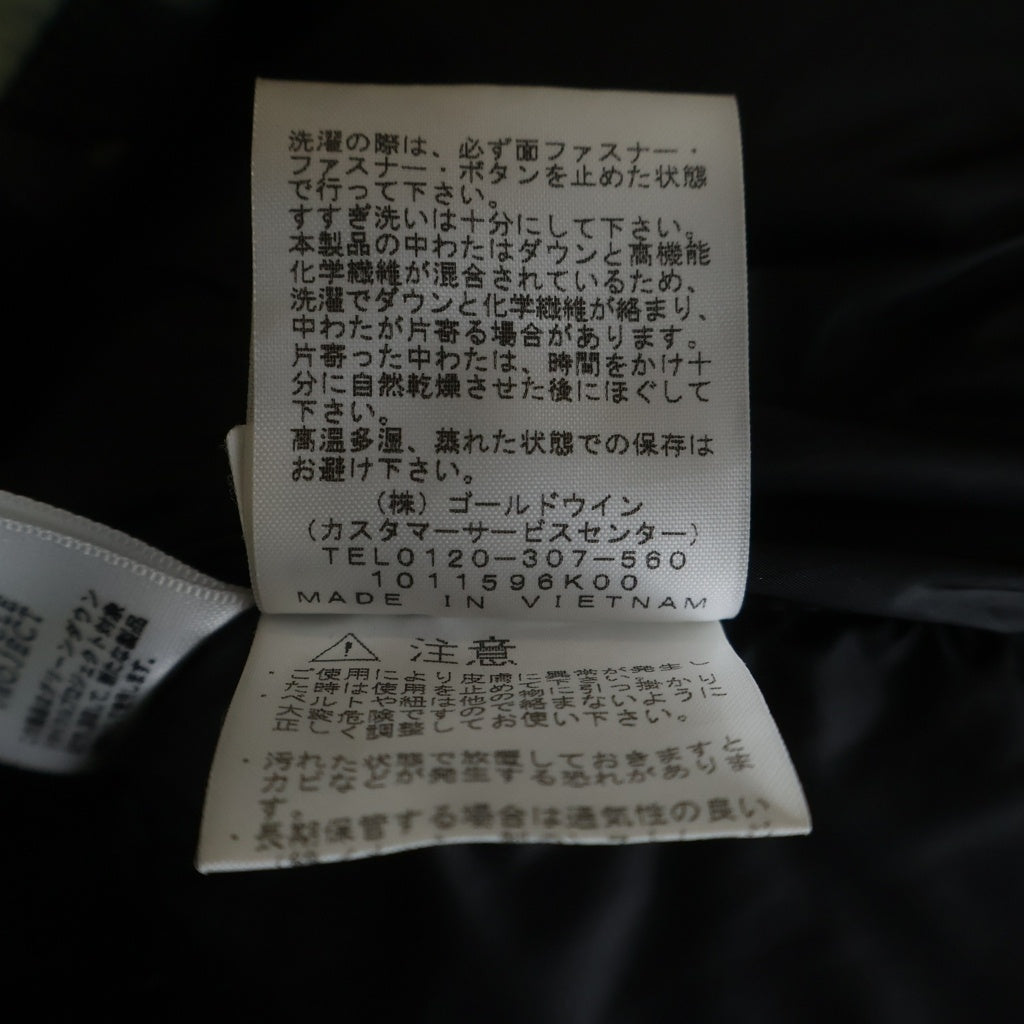 洗濯の際は、必ず面ファスナー・
ファスナー・ボタンを止めた状態
で行って下さい。
すすぎ洗いは十分にして下さい。
本製品の中わたはダウンと高機能
化学繊維が混合されているため、
洗濯でダウンと化学繊維が絡まり、
中わたが片寄る場合があります。
片寄った中わたは、時間をかけ十
分に自然乾燥させた後にほぐして
下さい。
高温多湿、蒸れた状態での保存は
お避け下さい。
(株)ゴールドウイン
(カスタマーサービスセンター)
TEL0120-307-560
1011596K00
MADE IN VIETNAM
注意
・ご使用により皮膚に異常が発生し
正しく調整してお使い下さい。
・汚れた状態で放置しておきますと
カビなどが発生する恐れがありま
す。
・長期保管する場合は通気性の良い
PROJECT